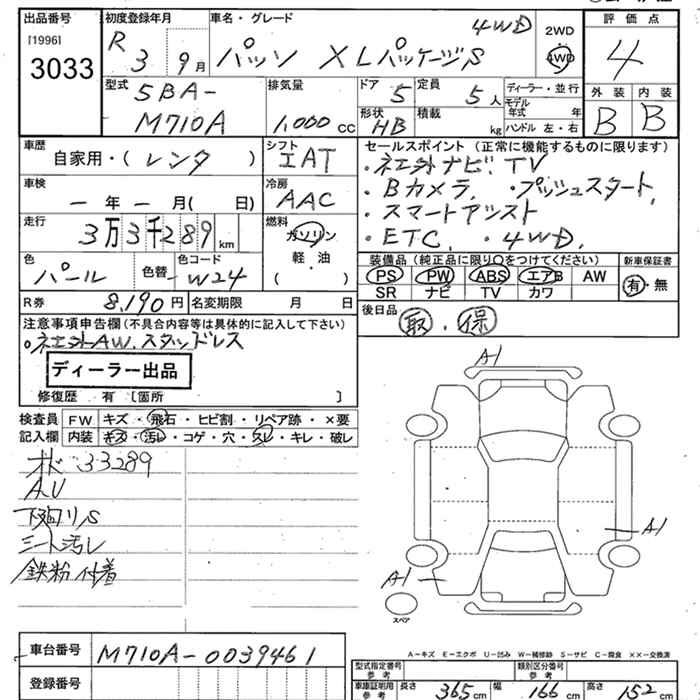 出品番号 初度登録年月 車名・グレード 評価点
[1996] R 3 9月 パッソ XLパッケージS 4WD 2WD 4WD 4
3033
型式 排気量 ドア 5 定員 5人 ディーラー・並行 外装 内装
5BA- モデル年式 年 B B
M710A 1,000cc 形状 HB 積載 kg ハンドル 左・右
車歴 シフト セールスポイント (正常に機能するものに限ります)
自家用・(レンタ) IAT ・ネエ外ナビ、TV
車検 冷房 ・Bカメラ、・プッシュスタート、
ー年ー月( 日) AAC ・スマートアシスト
走行 燃料 ・ETC、・4WD、
3万3千289km ガソリン
色 色替 色コード 軽・油 装備品(純正品に限り○をつけてください) 新車保証書
パール W24 ( ) PS PW ABS エアB AW 有・無
SR ナビ TV カワ
R券 8,190円 名変期限 月 日 後日品
注意事項申告欄(不具合内容等は具体的に記入して下さい) 取・保
・ネエ外AW、スタッドレス
ディーラー出品
修復歴 有 [箇所 ]
検査員 FW キズ・飛石・ヒビ割・リペア跡・×要
記入欄 内装 キズ・汚レ・コゲ・穴・スレ・キレ・破レ
オド33289
AU
下廻リS
シート汚レ
鉄粉付着
A1
A1
A1
スペア
車台番号 M710A-0039461
A-キズ E-エクボ U-凹み W-補修跡 S-サビ C-腐食 ××-交換済
登録番号 型式指定番号 参考 類別区分番号 参考
車庫証明用 参考 長さ 365cm 幅 166cm 高さ 152cm